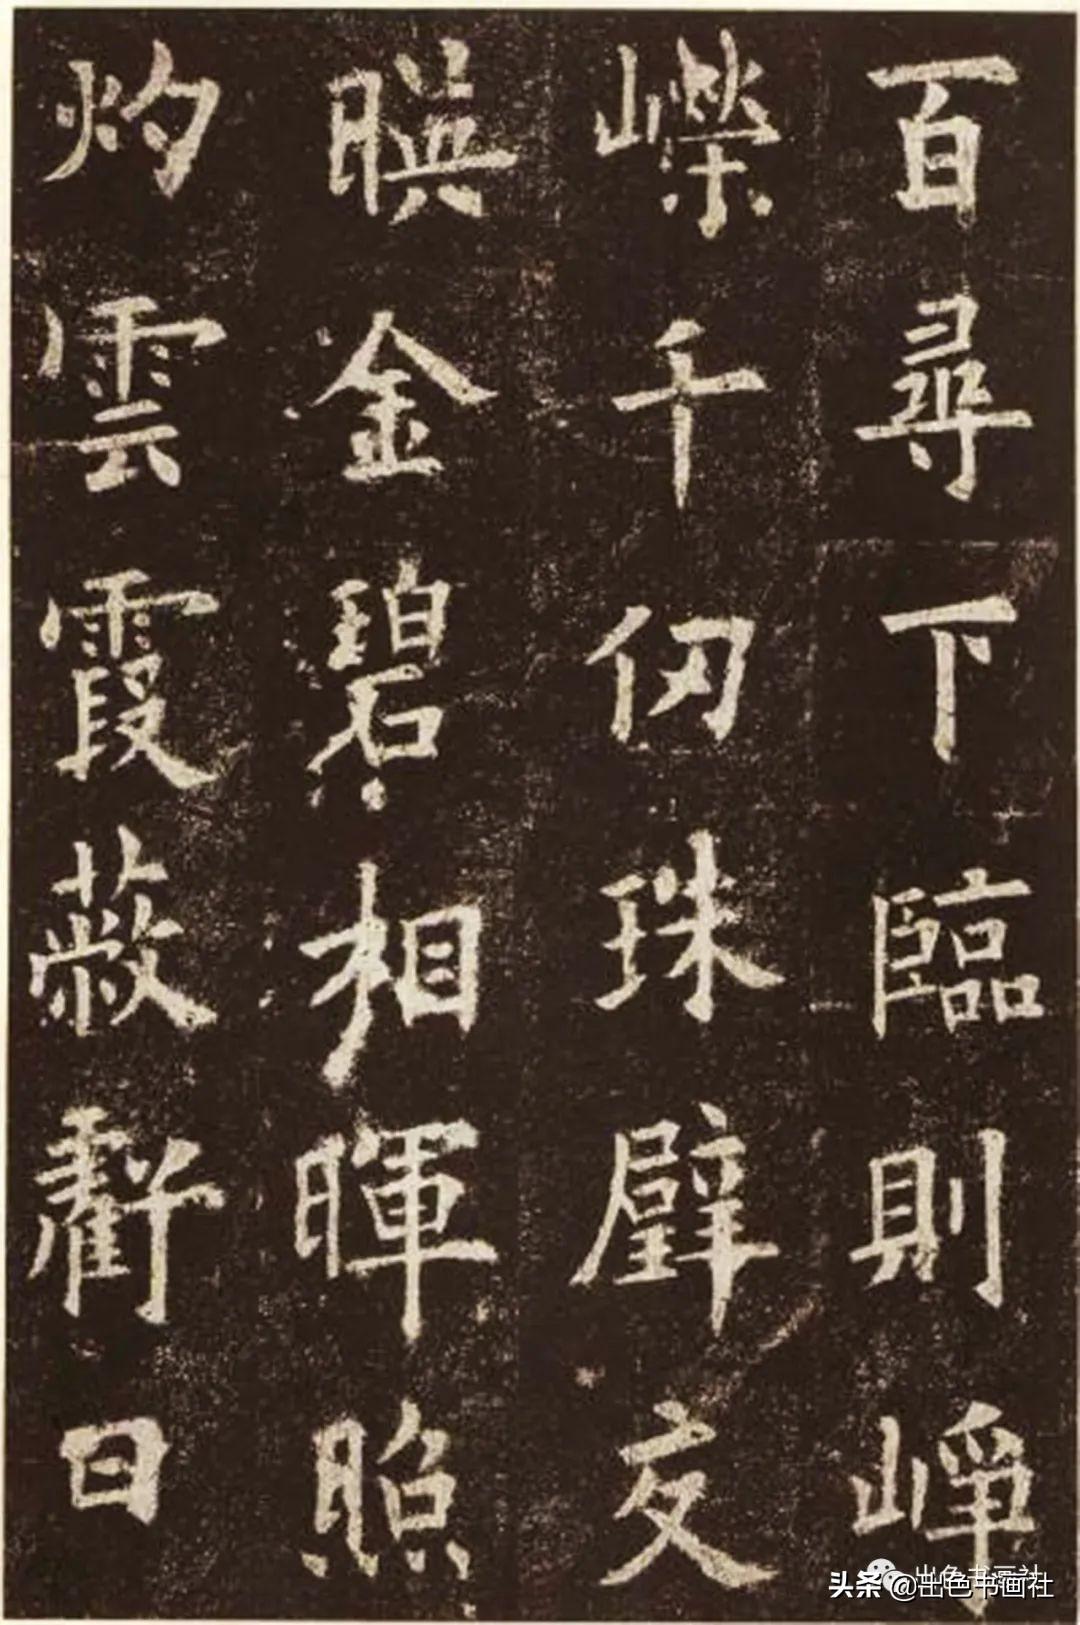 百尋下臨則崢
嶸千仞珠壁交
暎金碧相暉照
灼雲霞蔽虧日
头条 @出色书画社
出色书画社